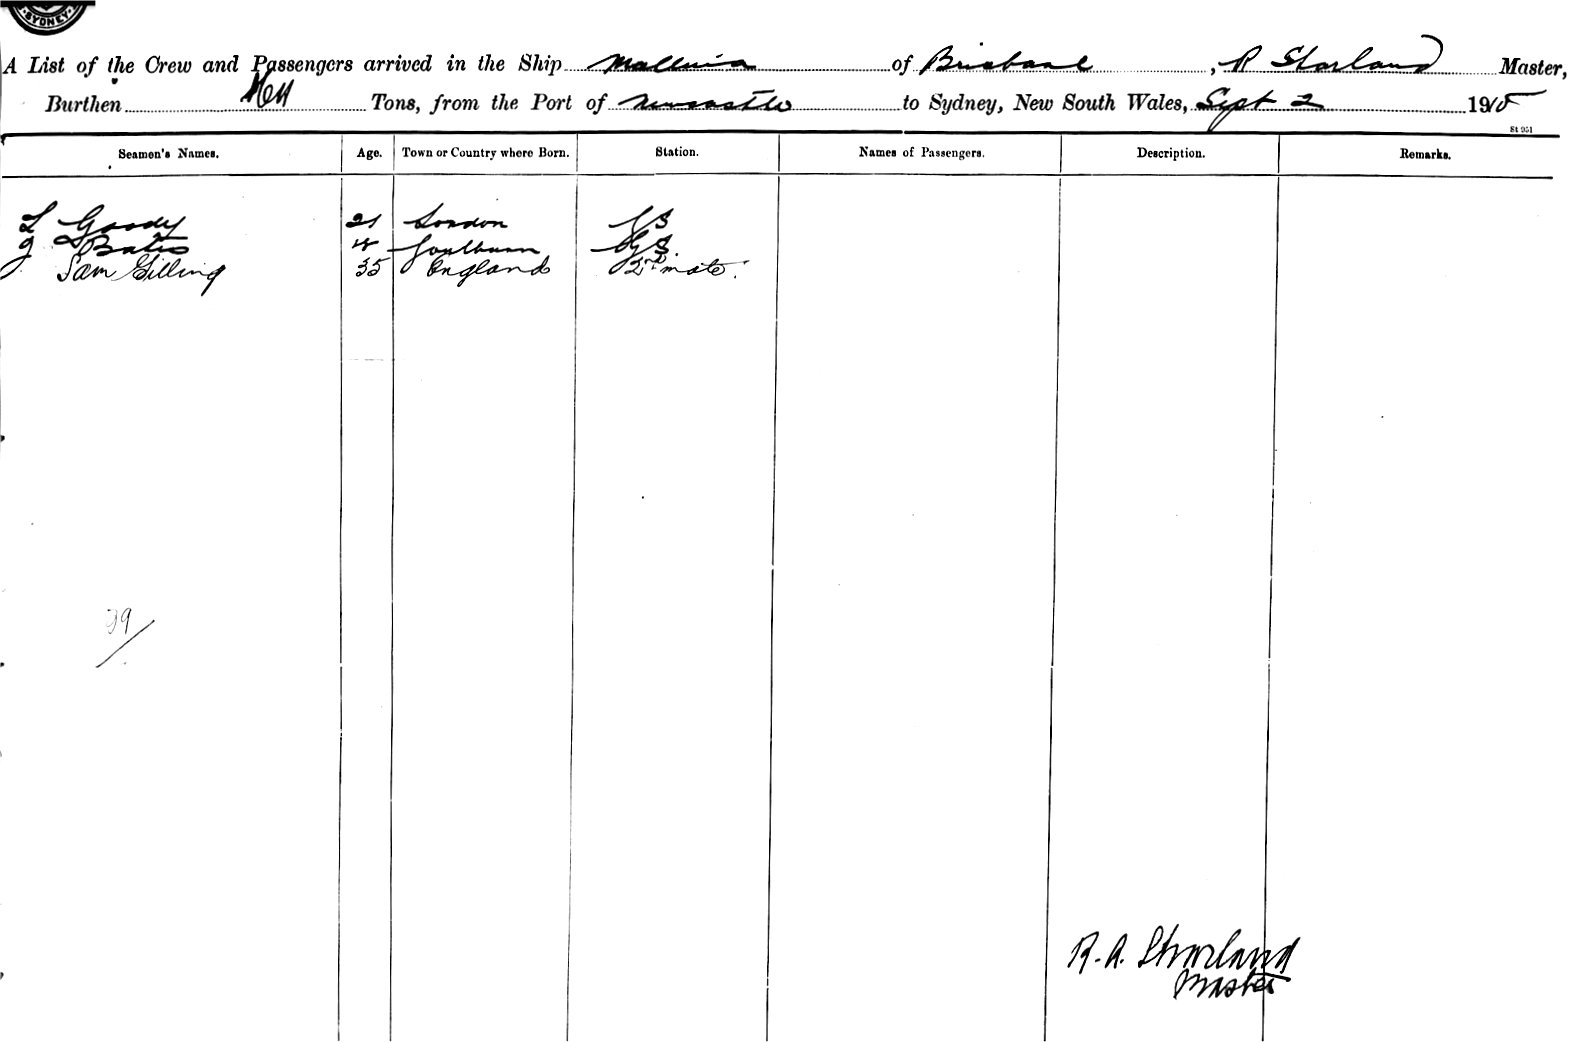 SYDNEY
A List of the Crew and Passengers arrived in the Ship of Brisbane, R Sharland Master,
Burthen Tons, from the Port of Newcastle to Sydney, New South Wales, Sept 2 1915
St 951
Seamen's Names. Age. Town or Country where Born. Station. Names of Passengers. Description. Remarks.
L Goody 21 London G S
J Bates 18 Goulburn G S.
Sam Gilling 35 England 2nd mate.
39/
R. A. Sharland
Master